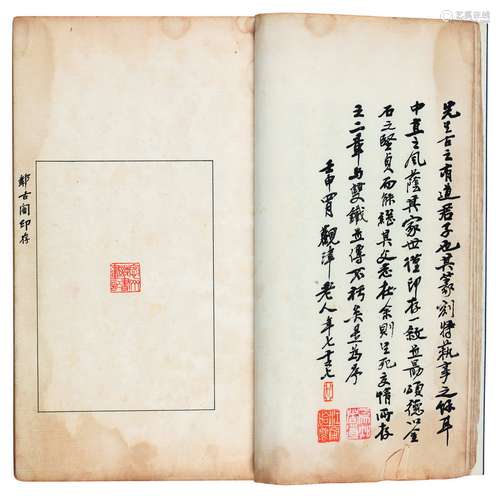 先生古之有道君子也其篆刻特萟事之餘耳
中直之風蔭其家世謹印存一紋並勗頌德以金
石之堅貞而能繼其父志在余則生死交情所存
二章与雙鐵並傳不朽矣是為序
壬申 觀津老人年七十七
古閣印存